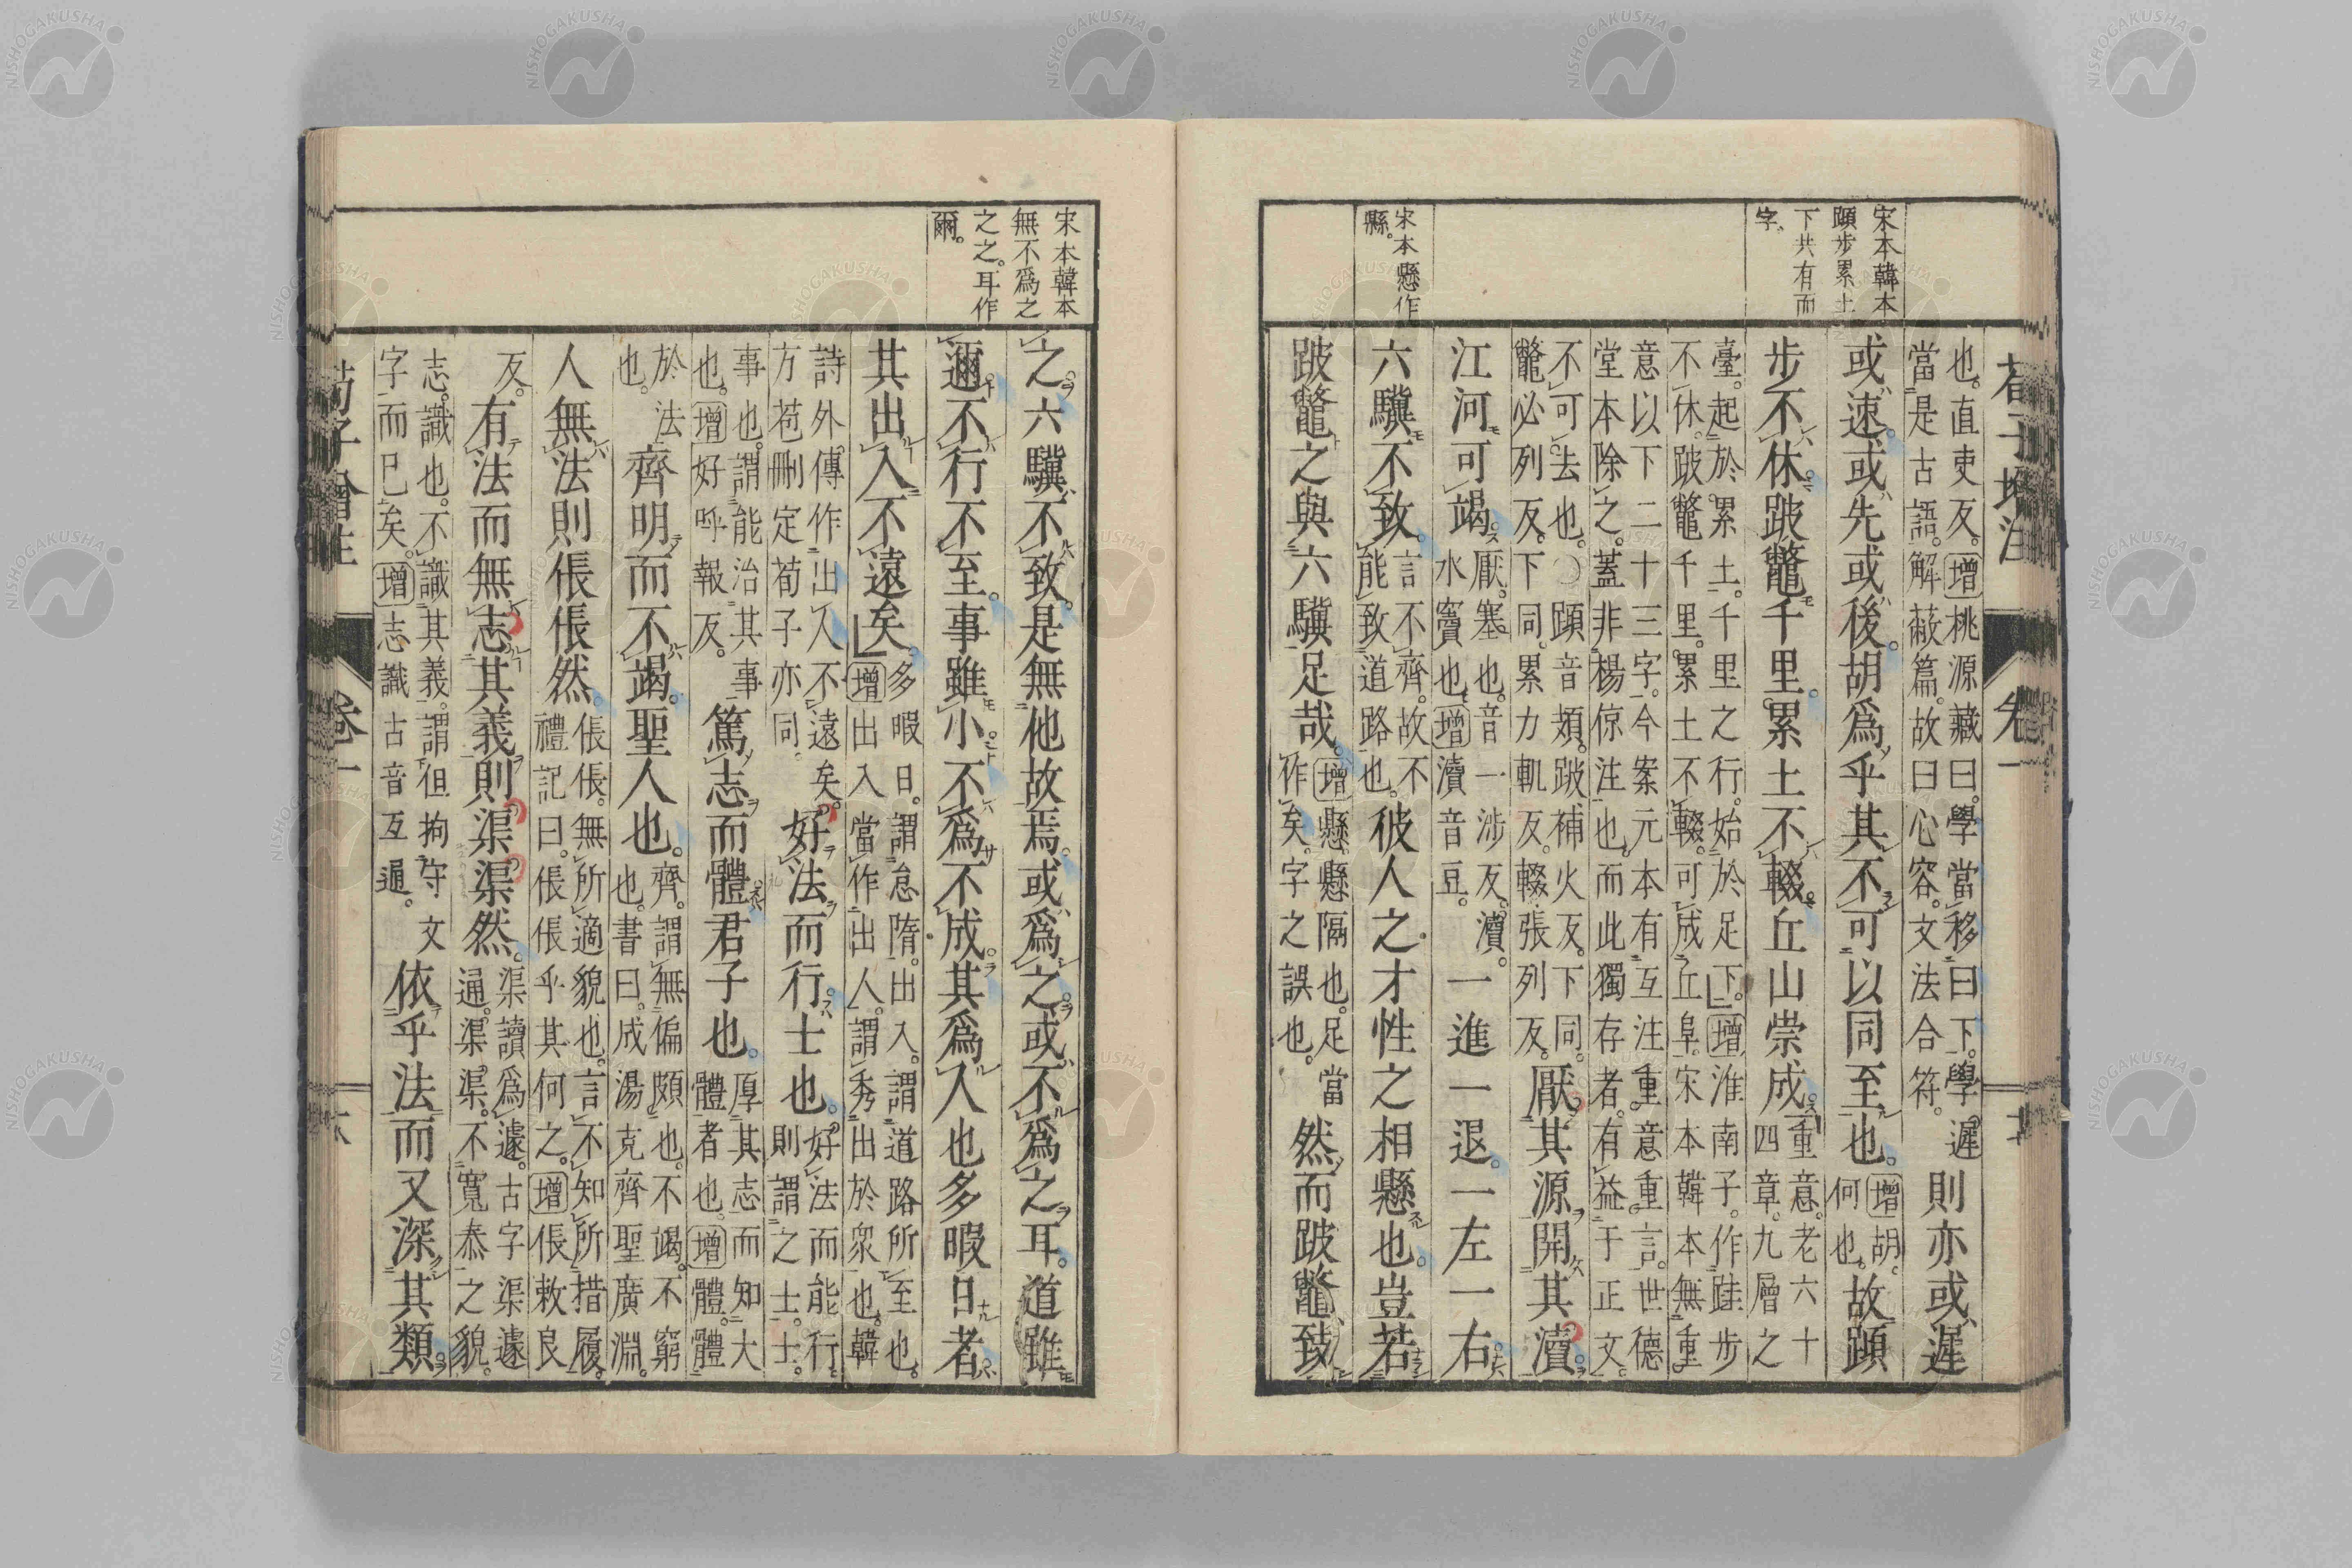 宋本韓本
蹞步累土
下共有而
字。
宋本懸作
縣。
荀子增注
卷一
也。直吏反。增桃源藏曰。學當移曰下。學。遲
當是古語。解蔽篇。故曰心容。文法合符。
則亦或遲
或速。或先或後。胡爲乎其不可以同至也。
增胡。
何也。
故蹞
步不休。跛鼈千里。累土不輟。丘山崇成。
重意。老六十
四章。九層之
臺。起於累土。千里之行。始於足下。增淮南子。作跬步
不休。跛鼈千里。累土不輟。可成丘阜。宋本韓本無重
意以下二十三字。今案元本有互注重意重言。世德
堂本除之。蓋非楊倞注也。而此獨存者。有益于正文。
不可去也。○蹞音頍。跛補火反。下同。
鼈必列反。下同。累力軌反。輟張列反。
厭其源。開其瀆。
江河可竭。
厭。塞也。音一涉反。瀆。
水竇也。增瀆音豆。
一進一退。一左一右。
六驥不致。
言不齊。故不
能致道路也。
彼人之才性之相懸也。豈若
跛鼈之與六驥足哉。
增懸。懸隔也。足當
作矣。字之誤也。
然而跛鼈致
宋本韓本
無不爲之
之之。耳作
爾。
之。六驥不致。是無他故焉。或爲之。或不爲之耳。道雖
邇。不行不至。事雖小。不爲不成。其爲人也多暇日者。
其出入不遠矣。
多暇日。謂怠隋。出入。謂道路所至也。
增出入當作出人。謂秀出於衆也。韓
詩外傳作出入不遠矣。
方苞刪定荀子亦同。
好法而行。士也。
好法而能行
則謂之士。士。
事也。謂能治其事
也。增好呼報反。
篤志而體。君子也。
厚其志而知大
體者也。增體。體
於法
也。
齊明而不竭。聖人也。
齊。謂無偏頗也。不竭。不窮
也。書曰。成湯克齊聖廣淵。
人無法則倀倀然。
倀倀。無所適貌也。言不知所措履。
禮記曰。倀倀乎其何之。增倀敕良
反。
有法而無志其義。則渠渠然。
渠讀爲遽。古字渠遽
通。渠渠。不寬泰之貌。
志。識也。不識其義。謂但拘守文
字而已矣。增志識古音互通。
依乎法。而又深其類。
荀子增注
卷一